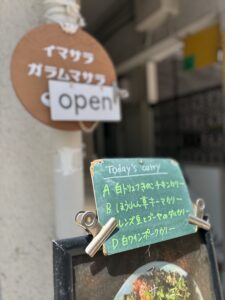 イマサラ
ガラムマサラ
open
Today's curry
A 白トリュフきのこチキンカリー
B ほうれん草キーマカリー
レンズ豆とゴーヤのダルカリー
D 白ワインポークカリー